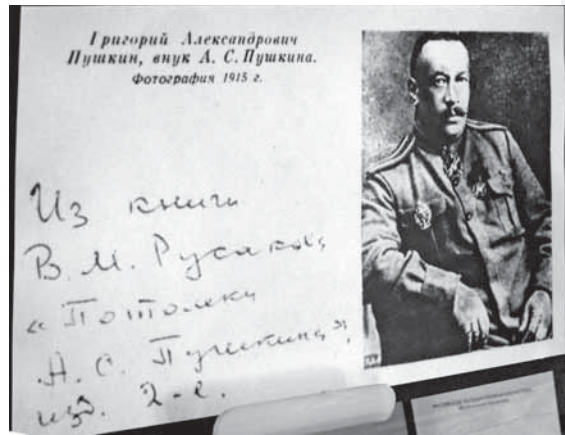 Григорий Александрович
Пушкин, внук А. С. Пушкина.
Фотография 1915 г.
Из книги
В. М. Русакова
"Потомки
А. С. Пушкина",
изд. 2-е.